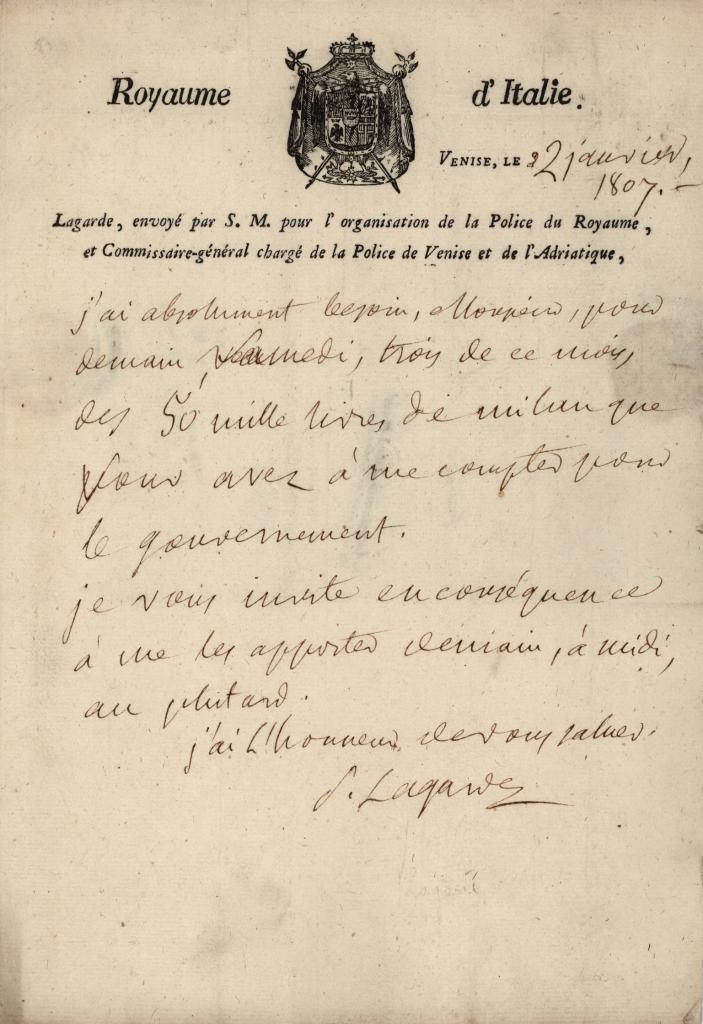 Royaume d'Italie.
VENISE, LE 2 janvier,
1807. -
Lagarde, envoyé par S. M. pour l'organisation de la Police du Royaume,
et Commissaire-général chargé de la Police de Venise et de l'Adriatique,
j'ai absolument besoin, Monsieur, pour
demain, samedi, trois de ce mois,
des 50 mille livres de milan que
vous avez à me compter pour
le gouvernement.
je vous invite en conséquence
à me les apporter demain, à midi,
au plutard.
j'ai L'honneur de vous saluer.
P. Lagarde